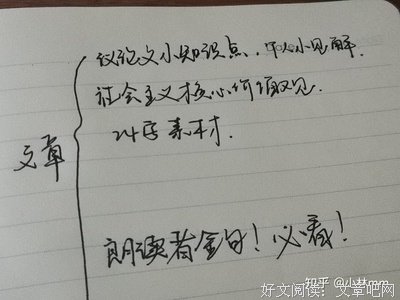 议论文小知识点,个人小见解.
社会主义核心价值观见.
24字素材.
文章
朗读者金句!必看!
知乎 @小林
好文阅读:文章吧网